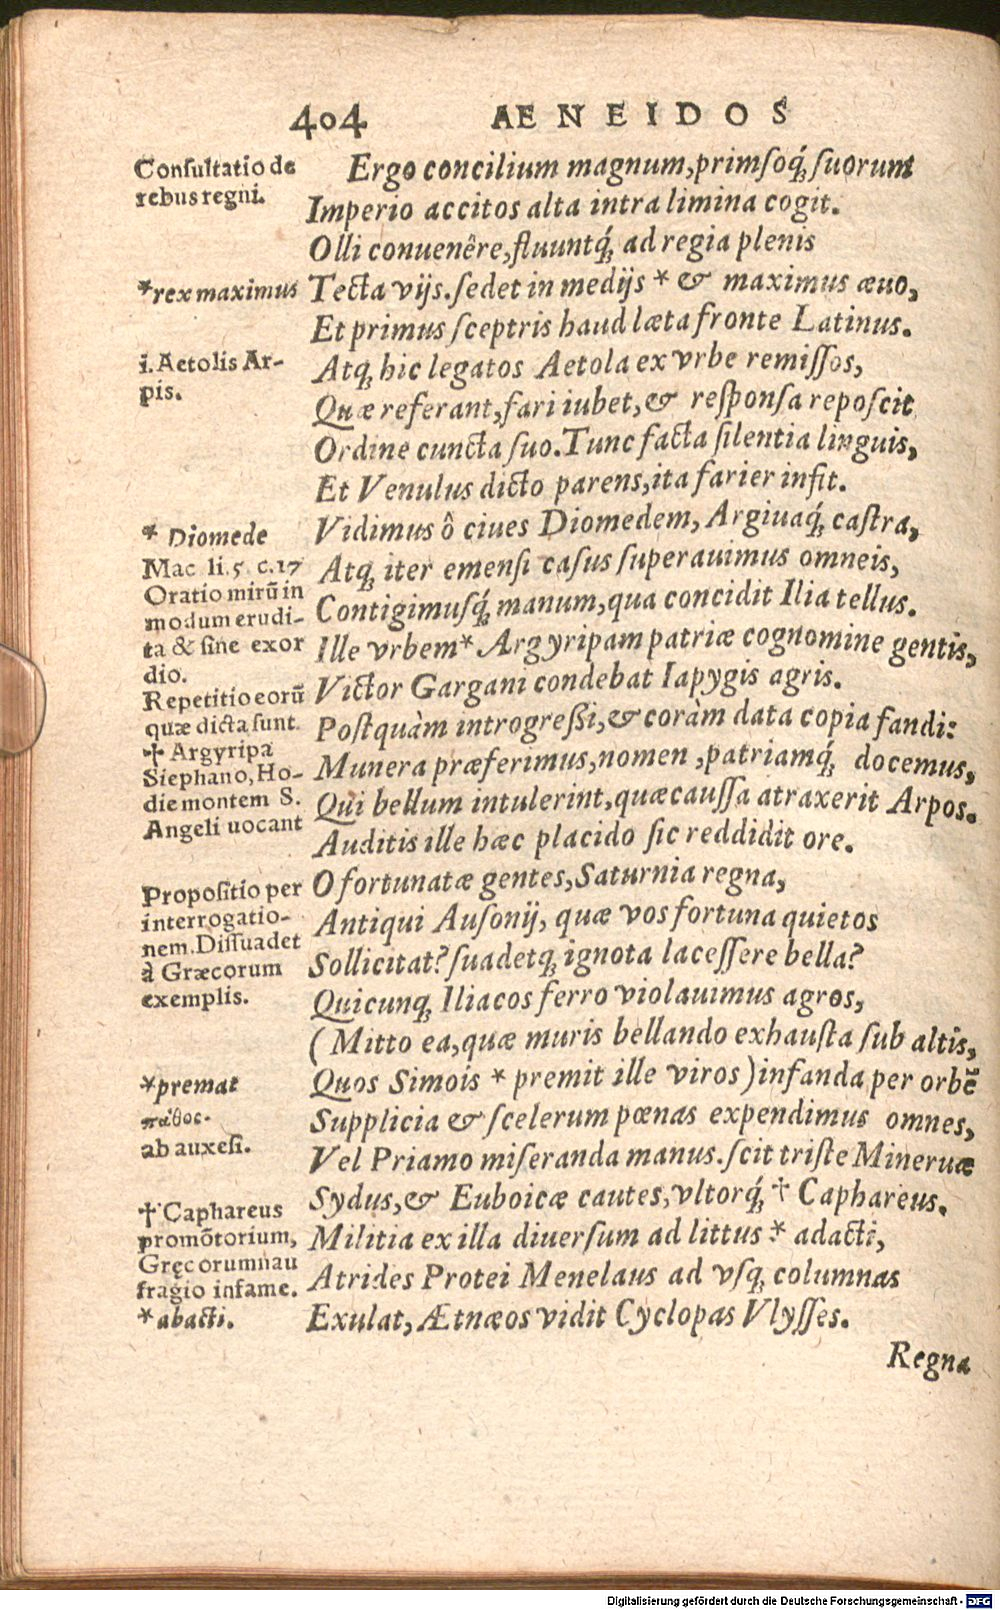 404 AENEIDOS
Consultatio de
rebus regni.
*rex maximus
i. Aetolis Ar-
pis.
* Diomede
Mac li.5 c.17
Oratio mirũ in
modum erudi-
ta & sine exor
dio.
Repetitio eorũ
quæ dicta sunt.
† Argyripa
Stephano, Ho-
die montem S.
Angeli uocant
Propositio per
interrogatio-
nem. Dissuadet
à Græcorum
exemplis.
*premat
πάθος.
ab auxesi.
† Caphareus
promõtorium,
Gręcorum nau
fragio infame.
*abacti.
Ergo concilium magnum, primſoq́; ſuorum
Imperio accitos alta intra limina cogit.
Olli conuenêre, fluuntq́; ad regia plenis
Tecta vijs. ſedet in medijs * & maximus æuo,
Et primus ſceptris haud læta fronte Latinus.
Atq; hic legatos Aetola ex vrbe remiſſos,
Quæ referant, fari iubet, & reſponſa repoſcit
Ordine cuncta ſuo. Tunc facta ſilentia linguis,
Et Venulus dicto parens, ita farier infit.
Vidimus ô ciues Diomedem, Argiuaq́; caſtra,
Atq; iter emenſi caſus ſuperauimus omneis,
Contigimuſq́; manum, qua concidit Ilia tellus.
Ille vrbem* Argyripam patriæ cognomine gentis,
Victor Gargani condebat Iapygis agris.
Poſtquàm introgreßi, & coràm data copia fandi:
Munera præferimus, nomen, patriamq́; docemus,
Qui bellum intulerint, quæ cauſſa atraxerit Arpos.
Auditis ille hæc placido ſic reddidit ore.
O fortunatæ gentes, Saturnia regna,
Antiqui Auſonij, quæ vos fortuna quietos
Sollicitat? ſuadetq; ignota laceſſere bella?
Quicunq; Iliacos ferro violauimus agros,
(Mitto ea, quæ muris bellando exhauſta ſub altis,
Quos Simois * premit ille viros) infanda per orbẽ
Supplicia & ſcelerum pœnas expendimus omnes,
Vel Priamo miſeranda manus. ſcit triſte Mineruæ
Sydus, & Euboicæ cautes, vltorq́; † Caphareus.
Militia ex illa diuerſum ad littus * adacti,
Atrides Protei Menelaus ad vſq; columnas
Exulat, Ætnæos vidit Cyclopas Vlyſſes.
Regna
Digitalisierung gefördert durch die Deutsche Forschungsgemeinschaft - DFG